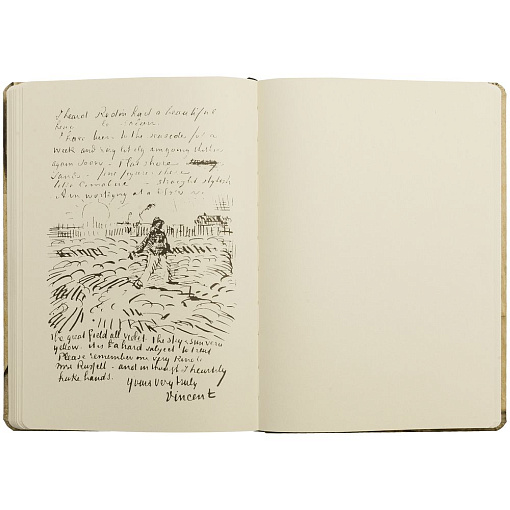 I heard Rodin had a beautiful
head
I have been to the seaside for a
week and very likely am going thither
again soon – Flat shore
sands – fine figures there
like Cimabue – straight stylish
Am working at a Sower
the great field all violet the sky & sun very
yellow. it is a hard subject to treat
Please remember me very kindly to
Mrs Russell – and in thought I heartily
shake hands.
Yours very truly
Vincent